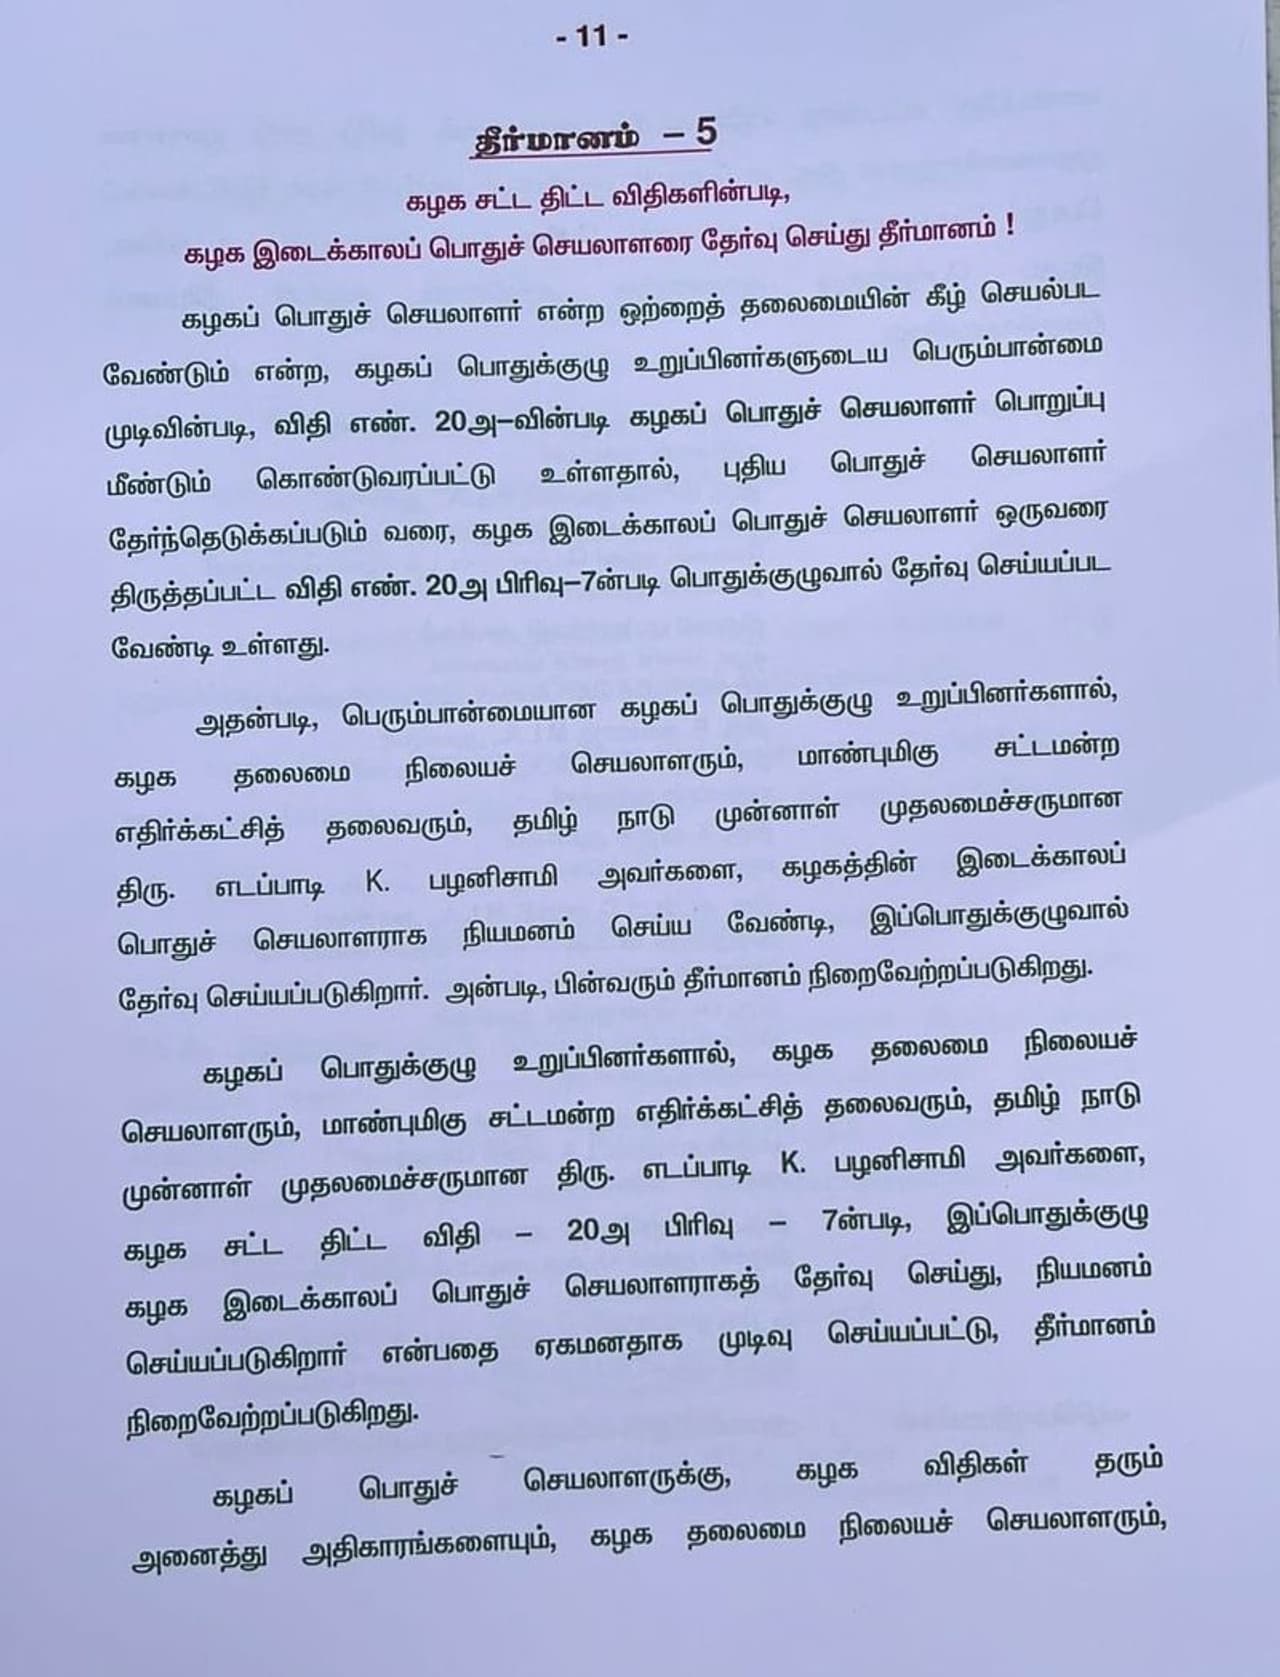 - 11 -
தீர்மானம் – 5
கழக சட்ட திட்ட விதிகளின்படி,
கழக இடைக்காலப் பொதுச் செயலாளரை தேர்வு செய்து தீர்மானம் !
கழகப் பொதுச் செயலாளர் என்ற ஒற்றைத் தலைமையின் கீழ் செயல்பட
வேண்டும் என்ற, கழகப் பொதுக்குழு உறுப்பினர்களுடைய பெரும்பான்மை
முடிவின்படி, விதி எண். 20அ–வின்படி கழகப் பொதுச் செயலாளர் பொறுப்பு
மீண்டும் கொண்டுவரப்பட்டு உள்ளதால், புதிய பொதுச் செயலாளர்
தேர்ந்தெடுக்கப்படும் வரை, கழக இடைக்காலப் பொதுச் செயலாளர் ஒருவரை
திருத்தப்பட்ட விதி எண். 20அ பிரிவு–7ன்படி பொதுக்குழுவால் தேர்வு செய்யப்பட
வேண்டி உள்ளது.
அதன்படி, பெரும்பான்மையான கழகப் பொதுக்குழு உறுப்பினர்களால்,
கழக தலைமை நிலையச் செயலாளரும், மாண்புமிகு சட்டமன்ற
எதிர்க்கட்சித் தலைவரும், தமிழ் நாடு முன்னாள் முதலமைச்சருமான
திரு. எடப்பாடி K. பழனிசாமி அவர்களை, கழகத்தின் இடைக்காலப்
பொதுச் செயலாளராக நியமனம் செய்ய வேண்டி, இப்பொதுக்குழுவால்
தேர்வு செய்யப்படுகிறார். அன்படி, பின்வரும் தீர்மானம் நிறைவேற்றப்படுகிறது.
கழகப் பொதுக்குழு உறுப்பினர்களால், கழக தலைமை நிலையச்
செயலாளரும், மாண்புமிகு சட்டமன்ற எதிர்க்கட்சித் தலைவரும், தமிழ் நாடு
முன்னாள் முதலமைச்சருமான திரு. எடப்பாடி K. பழனிசாமி அவர்களை,
கழக சட்ட திட்ட விதி – 20அ பிரிவு – 7ன்படி, இப்பொதுக்குழு
கழக இடைக்காலப் பொதுச் செயலாளராகத் தேர்வு செய்து, நியமனம்
செய்யப்படுகிறார் என்பதை ஏகமனதாக முடிவு செய்யப்பட்டு, தீர்மானம்
நிறைவேற்றப்படுகிறது.
கழகப் பொதுச் செயலாளருக்கு, கழக விதிகள் தரும்
அனைத்து அதிகாரங்களையும், கழக தலைமை நிலையச் செயலாளரும்,